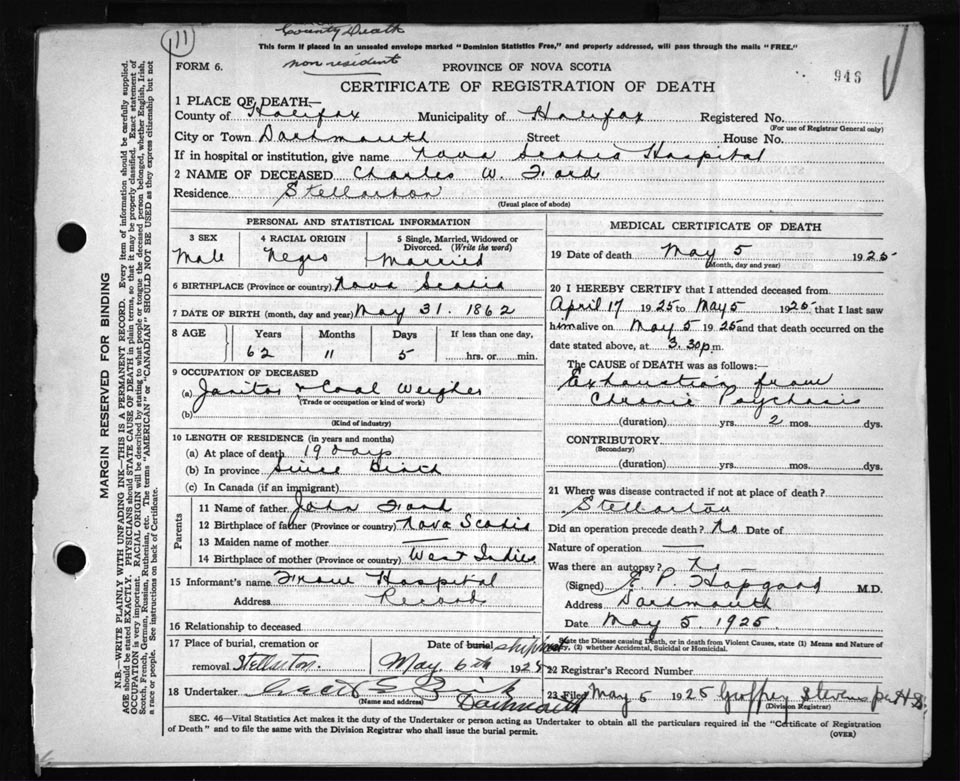 111
County Death
This form if placed in an unsealed envelope marked "Dominion Statistics Free," and properly addressed, will pass through the mails "FREE."
non resident
FORM 6.
PROVINCE OF NOVA SCOTIA
946
CERTIFICATE OF REGISTRATION OF DEATH
1 PLACE OF DEATH—
County of Halifax Municipality of Halifax Registered No.
(For use of Registrar General only)
City or Town Dartmouth Street House No.
If in hospital or institution, give name Nova Scotia Hospital
2 NAME OF DECEASED Charles W. Ford
Residence Stellarton
(Usual place of abode)
PERSONAL AND STATISTICAL INFORMATION
3 SEX
Male
4 RACIAL ORIGIN
Negro
5 Single, Married, Widowed or Divorced. (Write the word)
Married
6 BIRTHPLACE (Province or country) Nova Scotia
7 DATE OF BIRTH (month, day and year) May 31. 1862
8 AGE Years Months Days If less than one day,
62 11 5 hrs. or min.
9 OCCUPATION OF DECEASED
(a) Janitor & Coal Weigher
(Trade or occupation or kind of work)
(b)
(Kind of industry)
10 LENGTH OF RESIDENCE (in years and months)
(a) At place of death 19 days
(b) In province Since Birth
(c) In Canada (if an immigrant)
Parents
11 Name of father John Ford
12 Birthplace of father (Province or country) Nova Scotia
13 Maiden name of mother —
14 Birthplace of mother (Province or country) West Indies
15 Informant's name From Hospital
Address Record
16 Relationship to deceased
17 Place of burial, cremation or removal Stellarton.
Date of burial shipment
May 6th 1925
18 Undertaker
(Name and address)
Dartmouth
MEDICAL CERTIFICATE OF DEATH
19 Date of death May 5 1925
(Month, day and year)
20 I HEREBY CERTIFY that I attended deceased from
April 17 1925 to May 5 1925 that I last saw
him alive on May 5 1925 and that death occurred on the
date stated above, at 3.30 p.m.
The CAUSE of DEATH was as follows:—
Exhaustion from
Chronic Psychosis
(duration) yrs. 2 mos. dys.
CONTRIBUTORY
(Secondary)
(duration) yrs. mos. dys.
21 Where was disease contracted if not at place of death?
Stellarton
Did an operation precede death? no Date of
Nature of operation —
Was there an autopsy? no
(Signed) E. P. Hopgood M.D.
Address Dartmouth
Date May 5. 1925
State the Disease causing Death, or in death from Violent Causes, state (1) Means and Nature of Injury, (2) whether Accidental, Suicidal or Homicidal.
22 Registrar's Record Number
23 Filed May 5 1925 Geoffrey Stevens per
(Division Registrar)
SEC. 46—Vital Statistics Act makes it the duty of the Undertaker or person acting as Undertaker to obtain all the particulars required in the "Certificate of Registration
of Death" and to file the same with the Division Registrar who shall issue the burial permit.
(OVER)
MARGIN RESERVED FOR BINDING
N.B.—WRITE PLAINLY WITH UNFADING INK—THIS IS A PERMANENT RECORD. Every item of information should be carefully supplied.
AGE should be stated EXACTLY. PHYSICIANS should STATE CAUSE OF DEATH in plain terms, so that it may be properly classified. Exact statement of
OCCUPATION is very important. RACIAL ORIGIN will be described by stating to what people or tongue the deceased person belonged, whether English, Irish,
Scotch, French, German, Russian, Ruthenian, etc. The terms "AMERICAN" or "CANADIAN" SHOULD NOT BE USED as they express citizenship but not
a race or people. See instructions on back of Certificate.